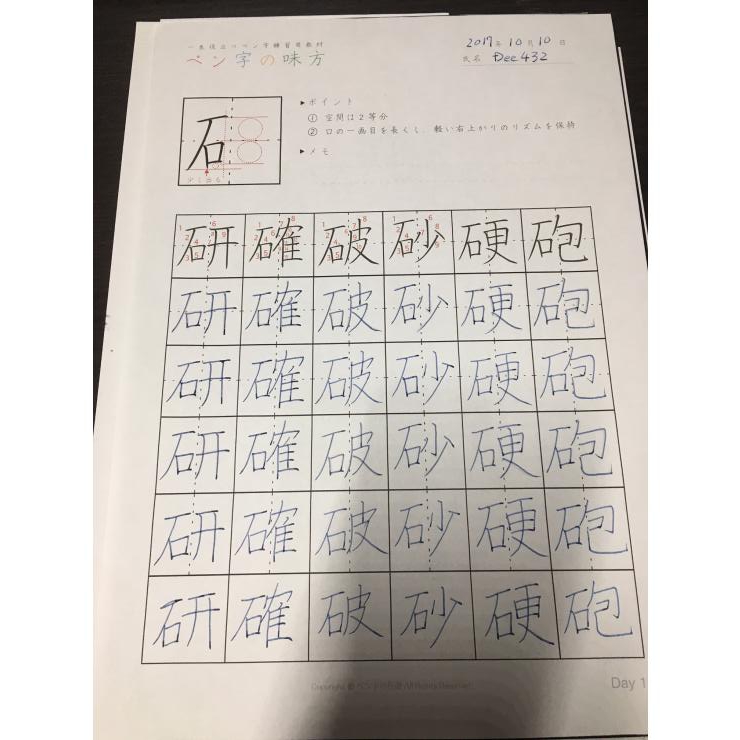 一生役立つペン字練習用教材
ペン字の味方
2017年 10月 10日
氏名 Dee432
石
少し出る
▶ポイント
① 空間は2等分
② 口の一画目を長くし、軽い右上がりのリズムを保持
▶メモ
研 確 破 砂 硬 砲
研 確 破 砂 硬 砲
研 確 破 砂 硬 砲
研 確 破 砂 硬 砲
研 確 破 砂 硬 砲
研 確 破 砂 硬 砲
Day 1